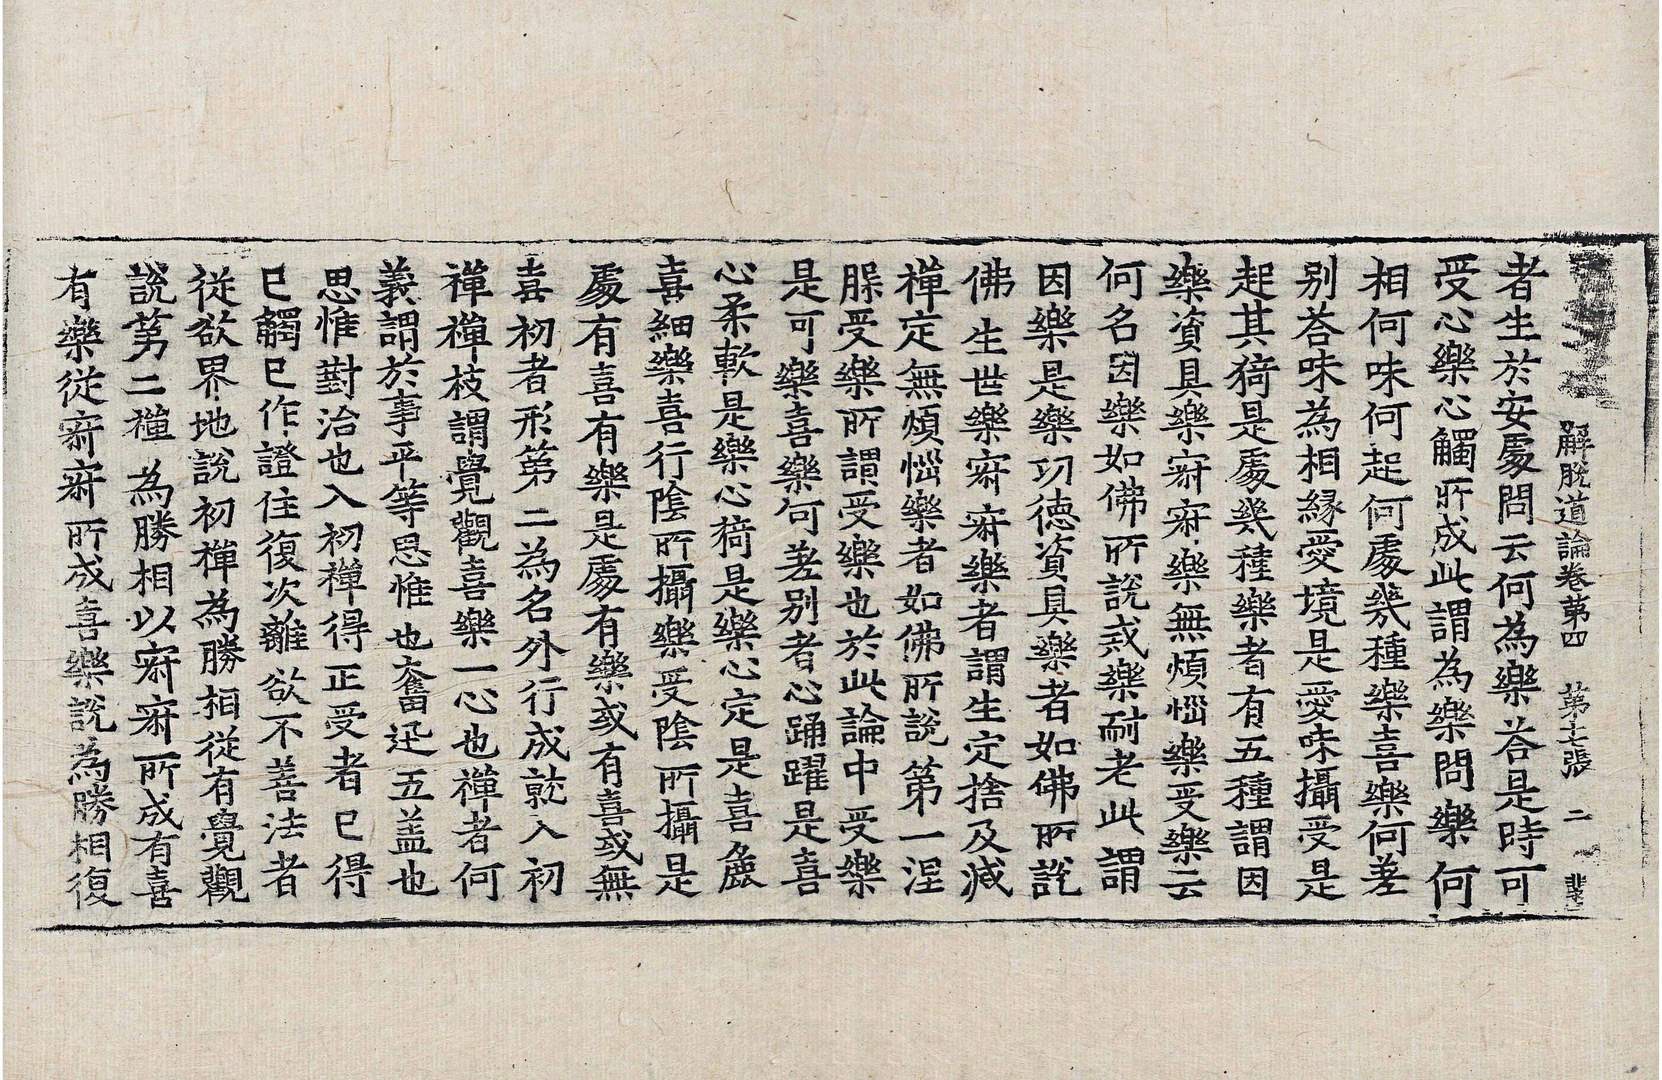 解脫道論卷第四　第七張　二
者生於安處問云何為樂荅是時可
受心樂心觸所成此謂為樂問樂何
相何味何起何處幾種樂喜樂何差
别荅味為相緣愛境是愛味攝受是
起其猗是處幾種樂者有五種謂因
樂資具樂寂寂樂無煩惱樂受樂云
何名因樂如佛所說戒樂耐老此謂
因樂是樂功德資具樂者如佛所說
佛生世樂寂寂樂者謂生定捨及滅
禪定無煩惱樂者如佛所說第一涅
槃受樂所謂受樂也於此論中受樂
是可樂喜樂何差别者心踊躍是喜
心柔軟是樂心猗是樂心定是喜麁
喜細樂喜行陰所攝樂受陰所攝是
處有喜有樂是處有樂或有喜或無
喜初者形第二為名外行成就入初
禪禪枝謂覺觀喜樂一心也禪者何
義謂於事平等思惟也奮迅五盖也
思惟對治也入初禪得正受者已得
已觸已作證住復次離欲不善法者
從欲界地說初禪為勝相從有覺觀
說第二禪為勝相以寂寂所成有喜
有樂從寂寂所成喜樂說為勝相復